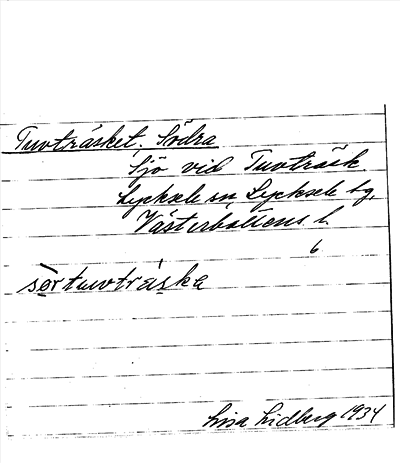 Tuvträsket, Södra
Sjö vid Tuvträsk
Lycksele sn, Lycksele tg,
Västerbottens l.
6
sørtuvtráska
Lisa Lidberg 1934